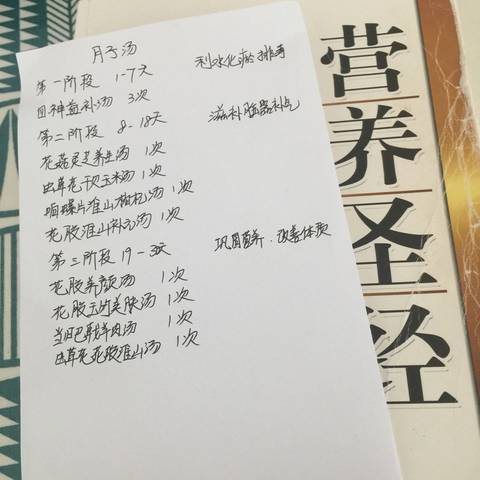 月子汤
第一阶段 1-7天 利水化瘀排毒
四神益补汤 3次
第二阶段 8-18天 滋补脏器补气
花菇灵芝养生汤 1次
虫草花干贝玉米汤 1次
响螺片淮山枸杞汤 1次
花胶淮山补元汤 1次
第三阶段 19-30天 巩固营养.改善体质
花胶养颜汤 1次
花胶玉竹美肤汤 1次
当归巴戟羊肉汤 1次
虫草花花胶淮山汤 1次
营养圣经